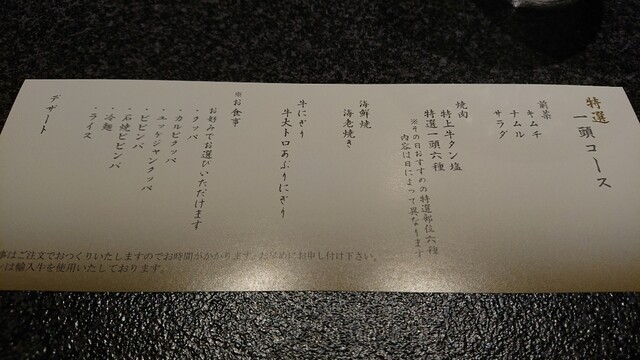 特選
一頭コース
前菜
キムチ
ナムル
サラダ
焼肉
特上牛タン塩
特選一頭六種
※その日おすすめの特選部位六種
内容は日によって異なります
海鮮焼
海老焼き
牛にぎり
牛大トロあぶりにぎり
※お食事
お好みでお選びいただけます
・クッパ
・カルビクッパ
・ユッケジャンクッパ
・ビビンバ
・石焼ビビンバ
・冷麺
・ライス
デザート
事はご注文でおつくりいたしますのでお時間がかかります。お早めにお申し付け下さい。
は輸入牛を使用いたしております。